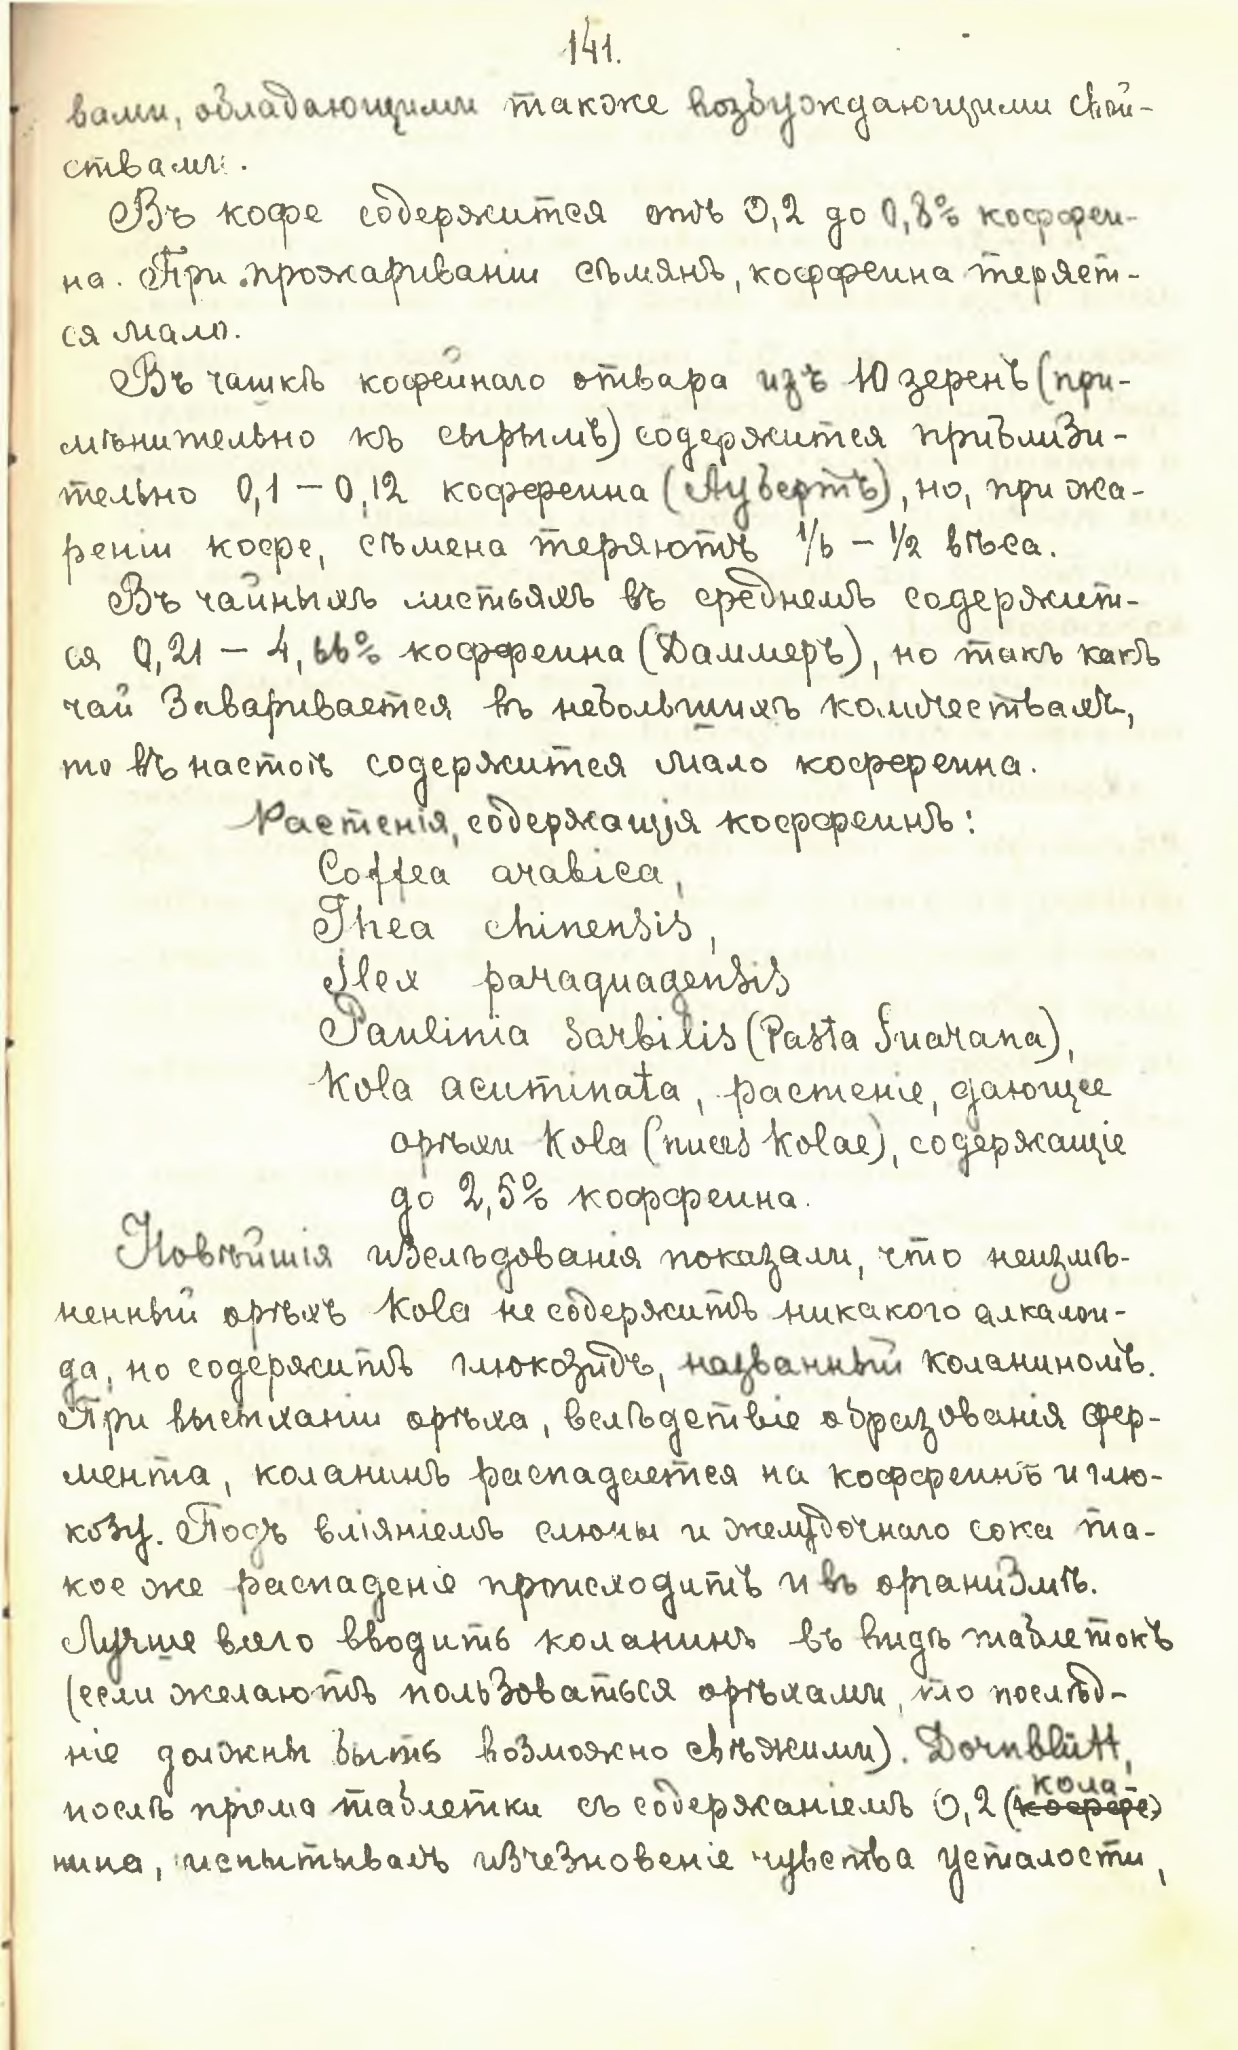 141.
вами, обладающими также возбуждающими свой-
ствами.
Въ кофе содержится отъ 0,2 до 0,8% коффеи-
на. При прожариваніи сѣмянъ, коффеина теряет-
ся мало.
Въ чашкѣ кофейнаго отвара изъ 10 зеренъ (при-
мѣнительно къ сырымъ) содержится приблизи-
тельно 0,1 – 0,12 коффеина (Аубертъ), но, при жа-
реніи кофе, сѣмена теряютъ 1/6 – 1/2 вѣса.
Въ чайныхъ листьяхъ въ среднемъ содержит-
ся 0,21 – 4,66% коффеина (Даммеръ), но такъ какъ
чай заваривается въ небольшихъ количествахъ,
то въ настоѣ содержится мало коффеина.
Растенія, содержащія коффеинъ:
Coffea arabica,
Thea chinensis,
Ilex paraguagensis
Paulinia sarbilis (Pasta Guarana),
Kola acuminata, растеніе, дающее
орѣхи Kola (nuces Kolae), содержащіе
до 2,5% коффеина.
Новѣйшія изслѣдованія показали, что неизмѣ-
ненный орѣхъ Kola не содержитъ никакого алкалои-
да, но содержитъ глюкозидъ, названный коланиномъ.
При высыханіи орѣха, вслѣдствіе образованія фер-
мента, коланинъ распадается на коффеинъ и глю-
козу. Подъ вліяніемъ слюны и желудочнаго сока та-
кое же распаденіе происходитъ и въ организмѣ.
Лучше всего вводить коланинъ въ видѣ таблетокъ
(если желаютъ пользоваться орѣхами, то послѣд-
ніе должны быть возможно свѣжими). Dornblütt,
кола
послѣ пріема таблетки съ содержаніемъ 0,2 (коффе)
нина, испытывалъ изчезновеніе чувства усталости,